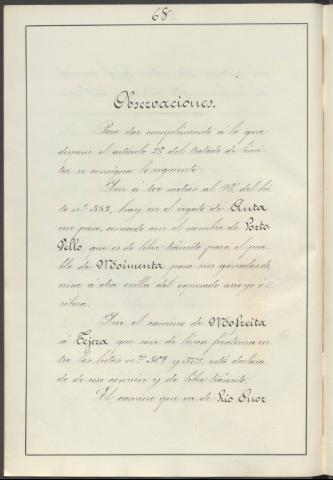 68
Observaciones.
Para dar cumplimiento á lo que
dispone el artículo 28 del tratado de lími-
tes se consigna lo siguiente:
Que á 100 metros al del hi-
to nº 353, hay en el regato de Anta
un paso, conocido con el nombre de Porto
Pello que es de libre tránsito para el pue-
blo de Moimenta para sus ganados de
una á otra orilla del expresado arroyo ó
ribera.
Que el camino de Mofreita
á Tejera que sirve de línea fronteriza en-
tre los hitos nos y está declara-
do de uso común y de libre tránsito.
El camino que va de Rio Onor